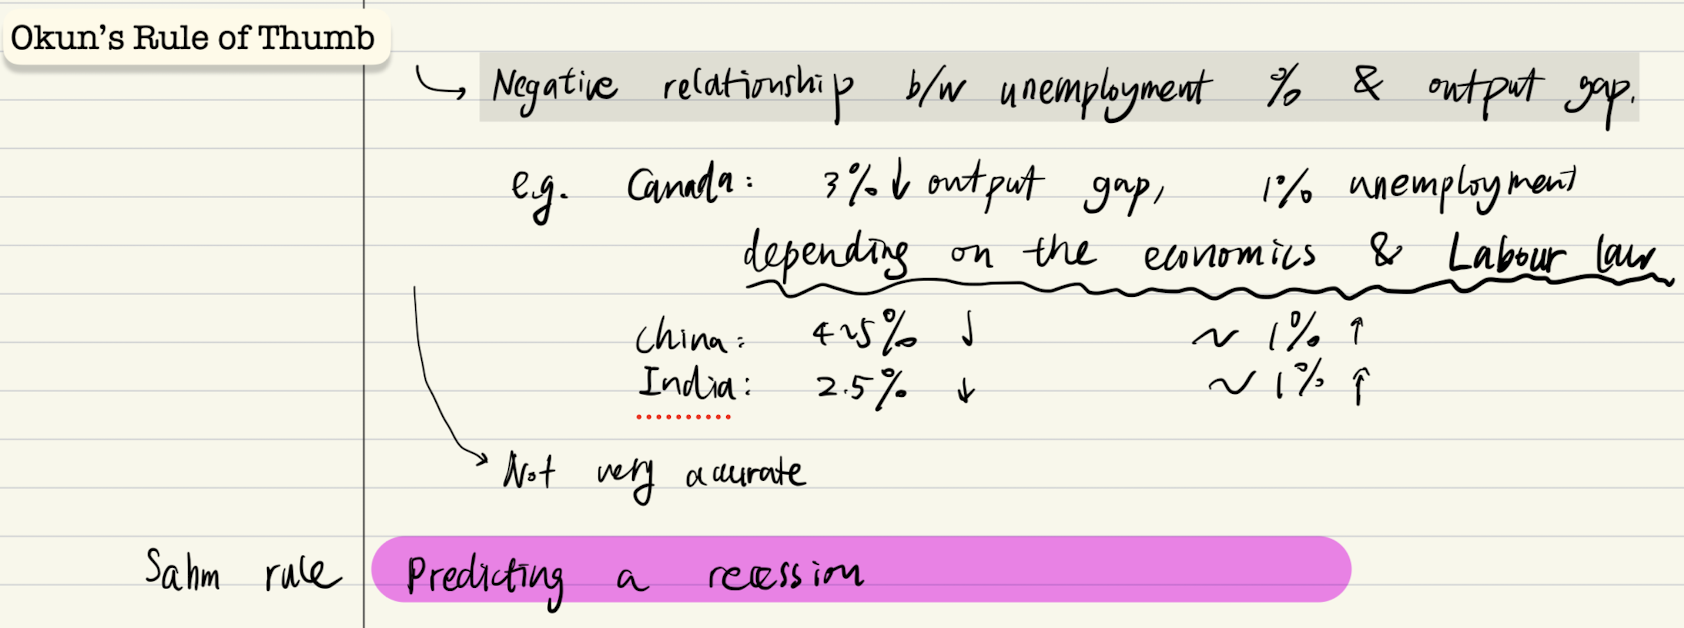 Okun's Rule of Thumb
↳ Negative relationship b/w unemployment % & output gap.
e.g. Canada: 3% ↓ output gap, 1% unemployment
depending on the economics & Labour law
China: 4~5% ↓ ~ 1% ↑
India: 2.5% ↓ ~ 1% ↑
Not very accurate
Sahm rule Predicting a recession